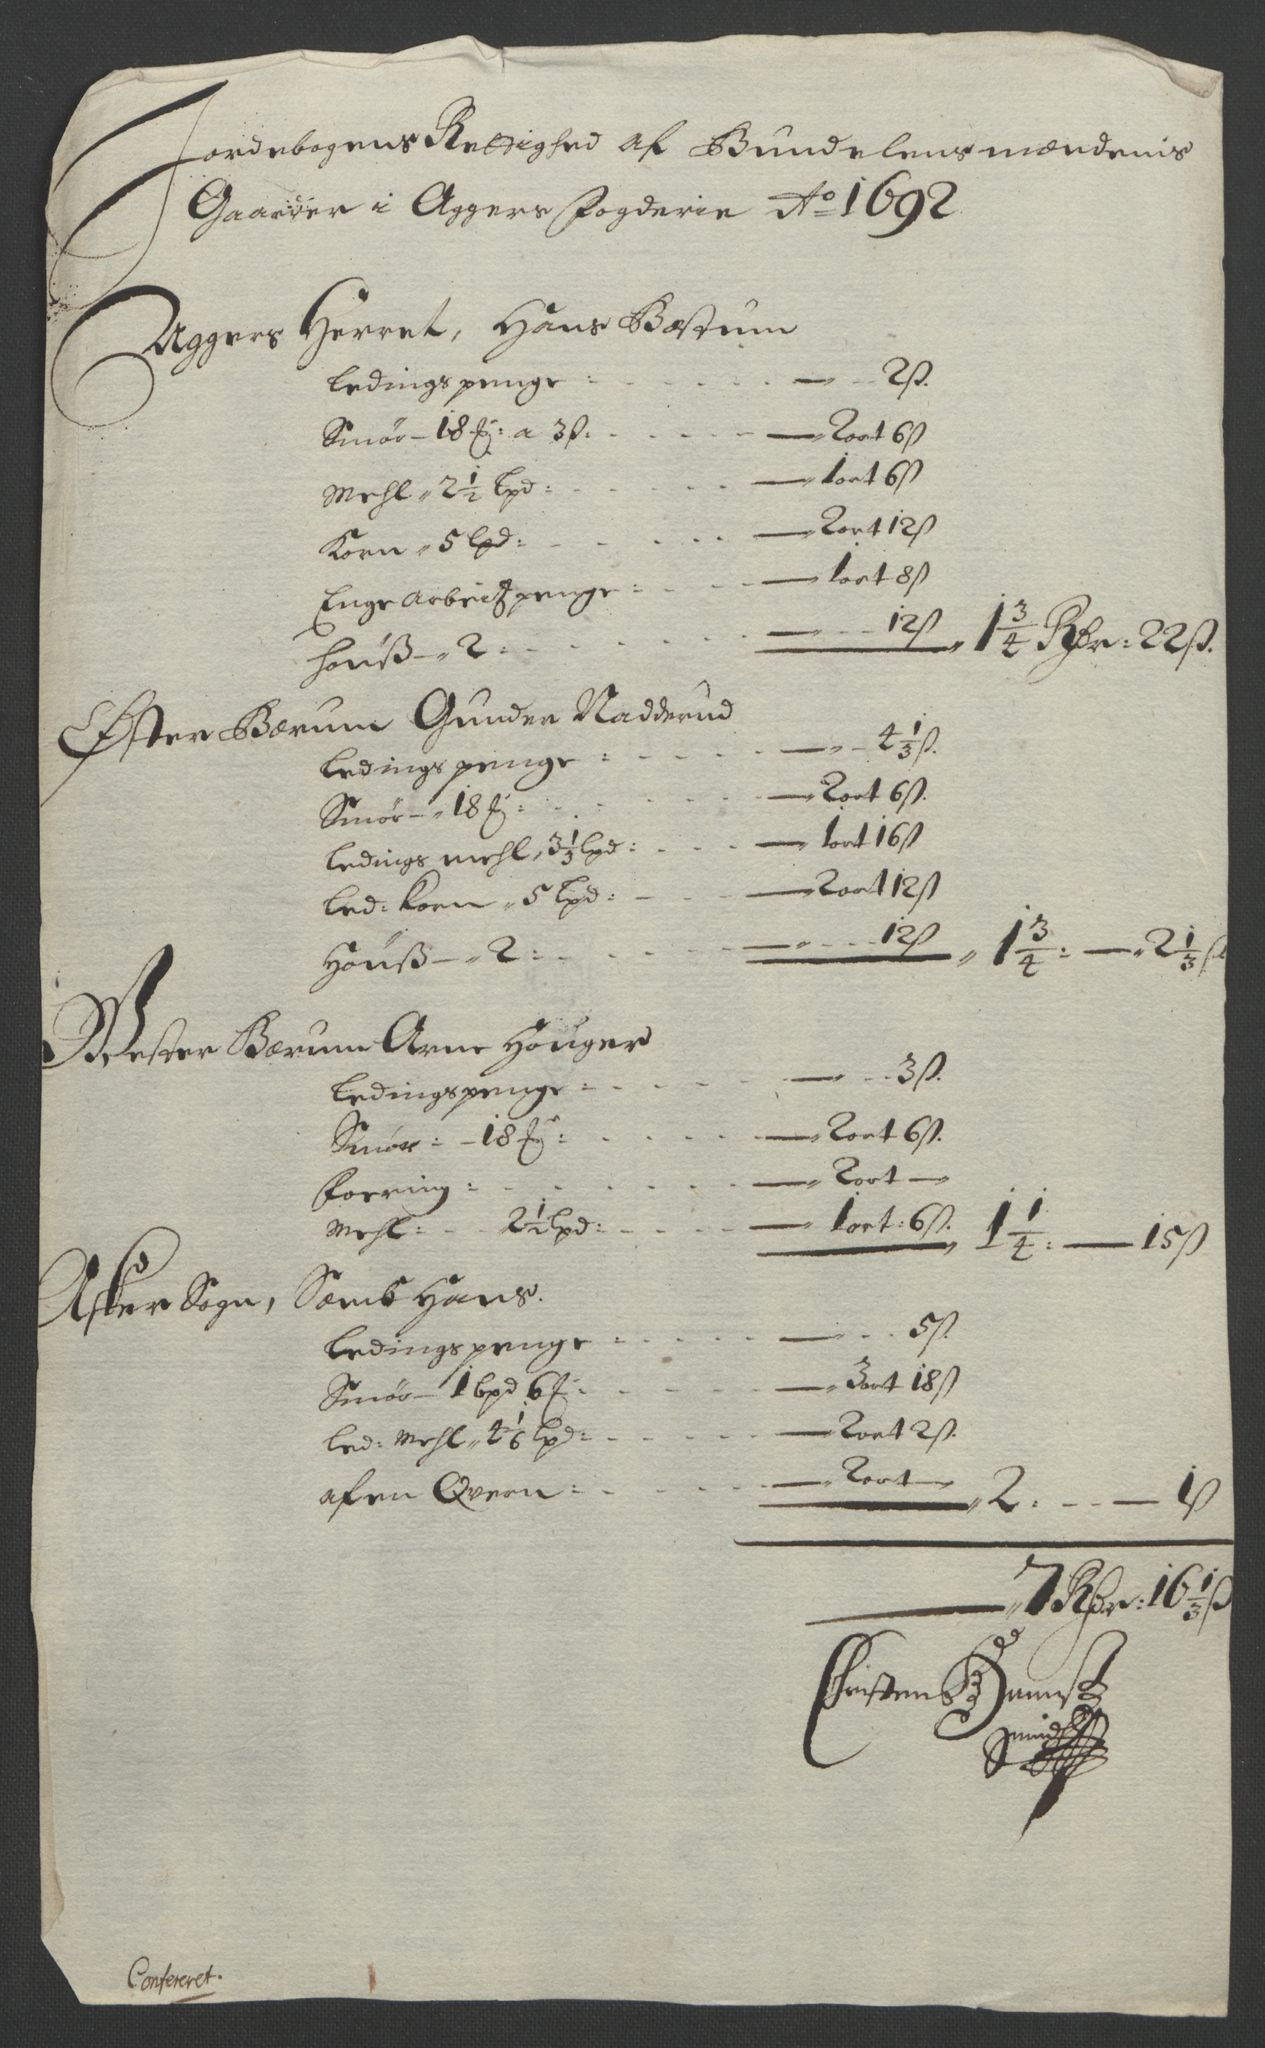 Jordebogens Rettighed af Bundelensmændenis
Gaarder i Aggers Fogderie Ao 1692
Aggers Herret, Hans Bæstum
Ledingspenge : — 2 ß.
Smør — 18 ℔: a 3 ß. — 2 ort 6 ß
Mehl 2 1/2 Lpd: — 1 ort 6 ß
Korn 5 Lpd: — 2 ort 12 ß
Enge arbeitzpenge : — 1 ort 8 ß
Houß — 2 : — 12 ß 1 3/4 Rdr: 22 ß.
Øster Bærum Gunder Nadderud
Ledingspenge : — 4 1/3 ß.
Smør — 18 ℔: — 2 ort 6 ß.
Ledings mehl, 3 1/3 Lpd: — 1 ort 16 ß
Led: Korn 5 Lpd: — 2 ort 12 ß
Houß — 2 : — 12 ß 1 3/4 : — 2 1/3 ß
Wester Bærum Arne Houger
Ledingspenge : — 3 ß.
Smør : — 18 ℔: — 2 ort 6 ß.
Foering : — 2 ort —
Mehl : — 2 1/2 Lpd: — 1 ort : 6 ß. 1 1/4 : — 15 ß
Asker Sogn, Sæmb Hans.
Ledingspenge : — 5 ß.
Smør — 1 bpd 6 ℔: — 3 ort 18 ß
Led: Mehl 4 1/6 Lpd: — 2 ort 2 ß.
af en Qvern : — 2 ort — 2 : — 1 ß
— 7 Rdr: 16 1/3 ß
Christen
Confereret.